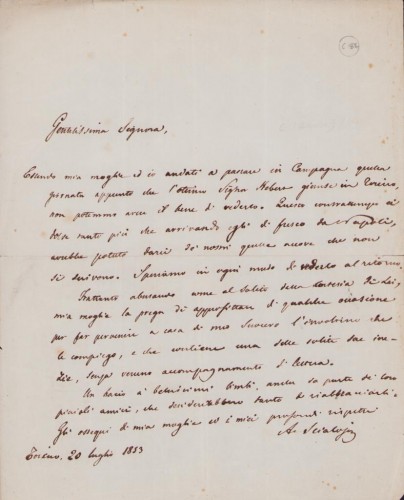 Gentilissima Signora,
Essendo mia moglie ed io andati a passare in Campagna quella
giornata appunto che l'ottimo Signor giunse in Torino,
non potemmo avere il bene di vederlo. Questo contrattempo ci
dolse tanto più che arrivando egli di fresco da Napoli,
avrebbe potuto darci de' nostri quelle nuove che non
si scrivono. Speriamo in ogni modo di vederlo al ritorno.
Frattanto abusando come al solito della cortesia di Lei,
mia moglie la prega di approfittare di qualche occasione
per far pervenire a casa di mio Suocero l'involtino che
le compiego, e che contiene una delle solite sue
senza veruno accompagnamento di lettera.
Un bacio a' bellissimi bimbi, anche da parte di loro
piccioli amici, che desiderebbero tanto di riabbracciarli.
Gli ossequi di mia moglie ed i miei profondi rispetti
A. Scialoja
Torino, 20 luglio 1853